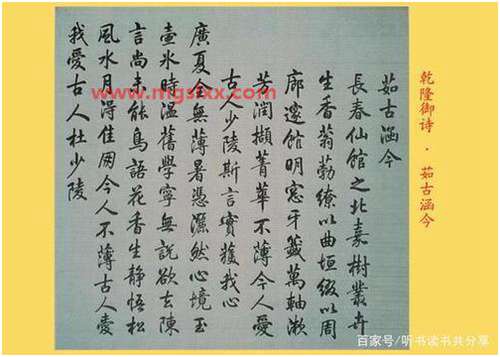 乾隆御诗 · 茹古涵今
茹古涵今
長春仙館之北嘉樹叢卉
生香蓊勃繚以曲垣綴以周
廊邃館明窓牙籤萬軸漱
芳潤擷菁華不薄今人愛
古人少陵斯言實獲我心
廣夏全無薄暑憑灑然心境玉
壺氷時温舊學寧無説欲去陳
言尚未能鳥語花香生静悟松
風水月得佳朋今人不薄古人愛
我愛古人杜少陵
www.mgsfxx.com
百家号/听书读书共分享